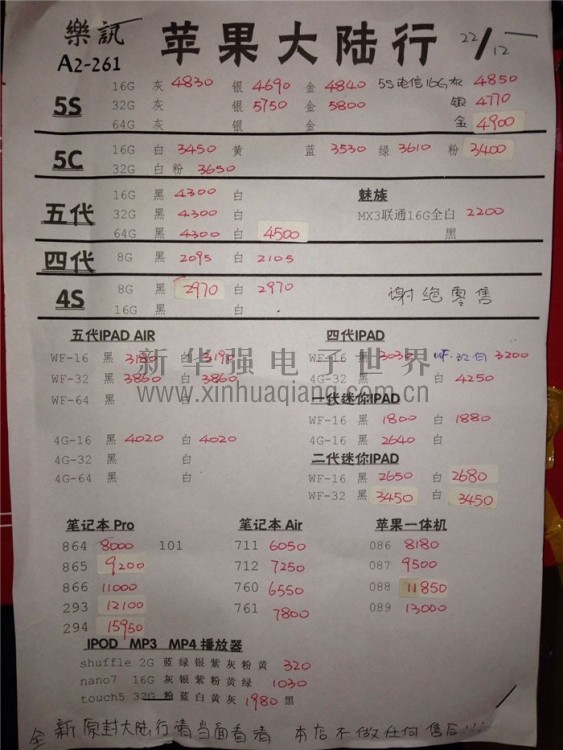 樂訊 苹果大陆行 22/12
A2-261
5S 16G 灰 4830 银 4690 金 4840 5S电信16G灰 4850
32G 灰 5750 金 5800 银 4770
64G 灰 银 金 金 4900
5C 16G 白 3450 黄 蓝 3530 绿 3610 粉 3400
32G 白 粉 3650
五代 16G 黑 4300 白 魅族
32G 黑 4300 白 MX3联通16G全白 2200
64G 黑 4300 白 4500 黑
四代 8G 黑 2095 白 2105
4S 8G 黑 2970 白 2970 谢绝零售
16G 黑 白
五代IPAD AIR 四代IPAD
WF-16 黑 白 WF-16 黑 3030 WF-32白 3200
WF-32 黑 3860 白 3860 4G-16 黑 白 4250
WF-64 黑 白 一代迷你IPAD
WF-16 黑 1800 白 1880
4G-16 黑 4020 白 4020 4G-16 黑 2640 白
4G-32 黑 白 二代迷你IPAD
4G-64 黑 白 WF-16 黑 2650 白 2680
WF-32 黑 3450 白 3450
新华强电子世界
www.xinhuaqiang.com.cn
笔记本 Pro 笔记本 Air 苹果一体机
864 8000 101 711 6050 086 8180
865 9200 712 7250 087 9500
866 11000 760 6550 088 11850
293 12100 761 7800 089 13000
294 15950
IPOD MP3 MP4 播放器
shuffle 2G 蓝绿银紫灰粉黄 320
nano7 16G 灰银紫粉黄绿 1030
touch5 32G 粉蓝白黄灰 1980 黑
全新原封大陆行请当面看清 本店不做任何售后!!!